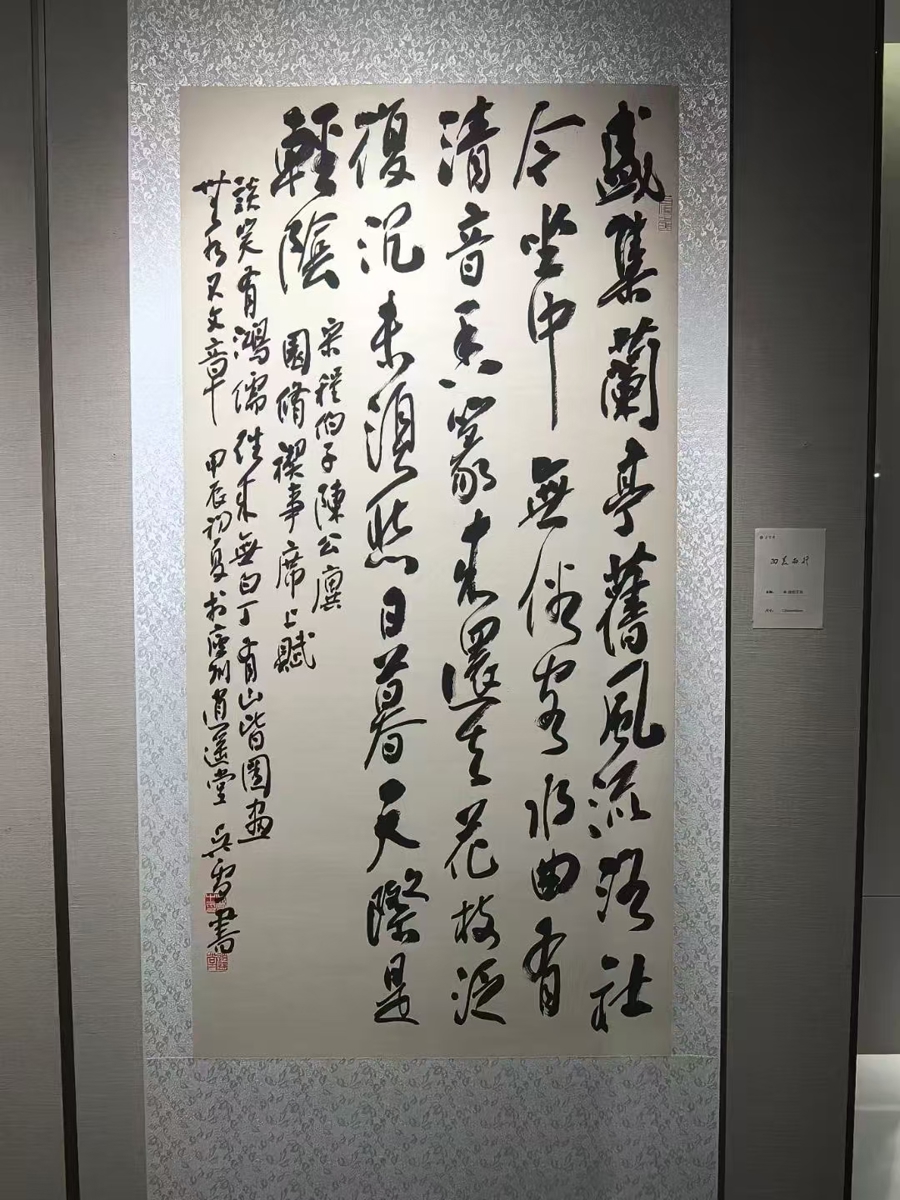 盛集蘭亭舊風流洛社
今坐中無俗客水曲有
清音香篆來還去花枝泛
復沉未須愁日暮天際是
輕陰
宋程伯子陳公廙
園脩禊事席上賦
談笑有鴻儒往來無白丁有山皆圖畫
無水不文章 甲辰初夏於廬州逍遙堂 吳雪書